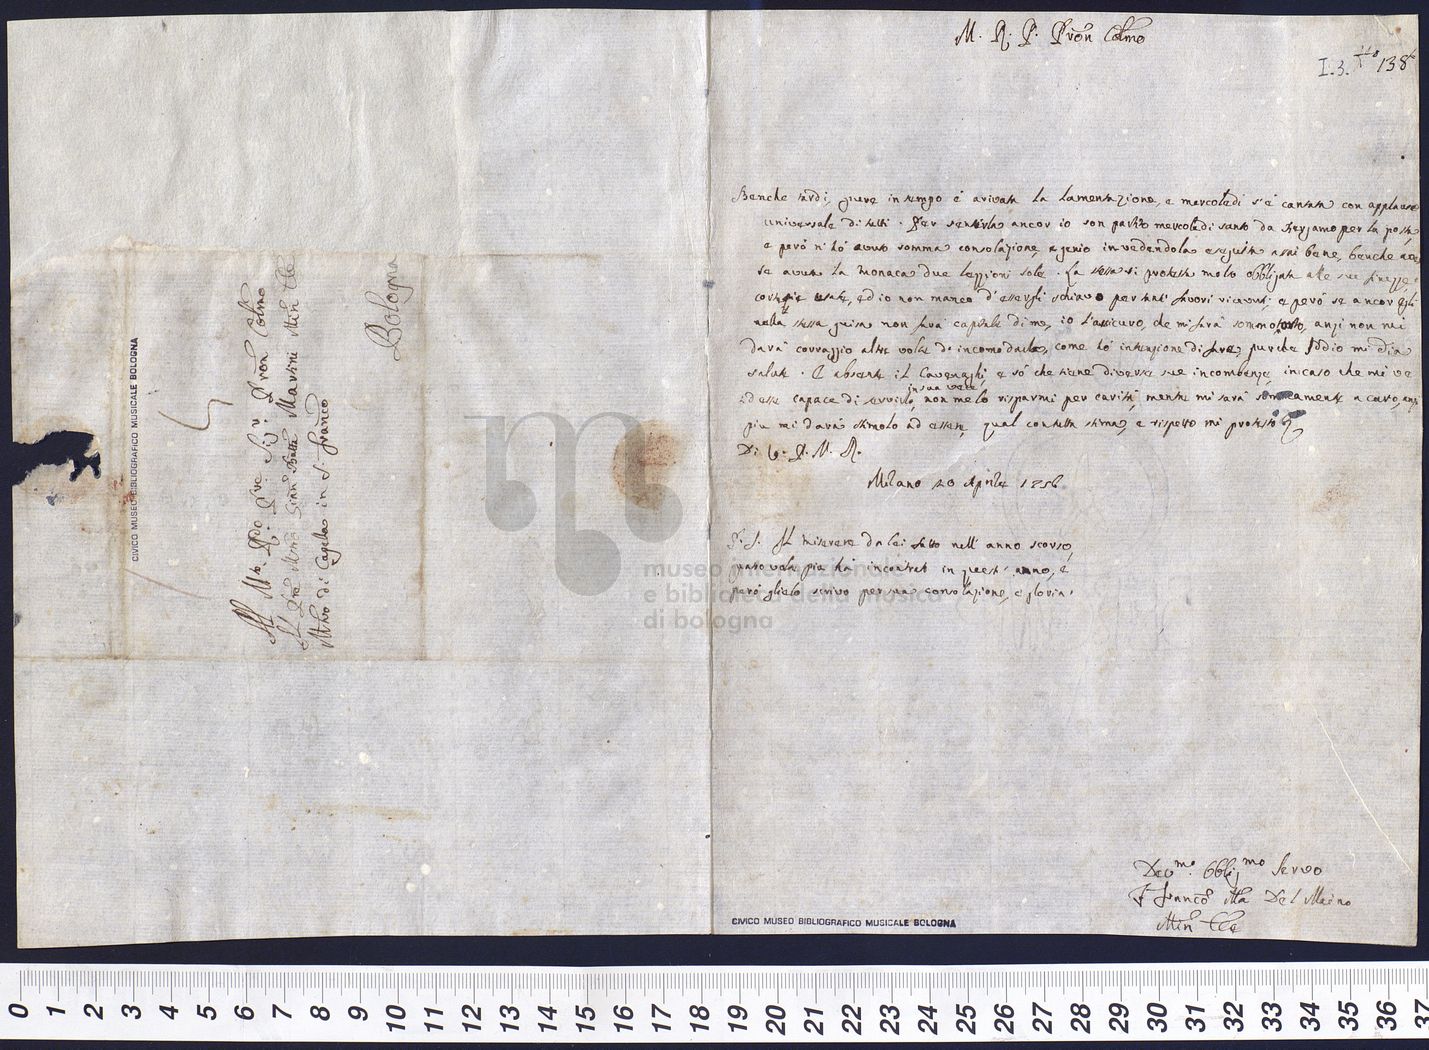 M. R. P. Pron Colmo
I.3. 138
Benche tardi, pure in tempo è arivata la Lamentazione, e mercoledi s'è cantata con applauso
universale di tutti. Per sentirla ancor io son partito mercoledi santo da per la posta,
e però n'hò avuto somma consolazione, e genio in vedendola eseguita assai bene, benche
se avuta la monaca due lezzioni sole. La stessa si protesta molto obbligata alle sue finezze,
cortesie usate, ed io non manco d'essergli schiavo per tanti favori ricevuti, e però se ancor egli
nella stessa guisa non farà capitale di me, io l'assicuro, che mi sarà sommo torto, anzi non mi
darà corraggio altre volte d'incomodarla, come hò intenzione di fare, purche Iddio mi dia
salute. È absente il Cavenaghi, e sò che tiene diverse sue incombenze, in caso che mi
d'esse capace di servirlo, in sua vece, non me lo risparmi per carità, mentre mi sarà a caro, anzi
piu mi darà stimolo ad essere, qual con tutta stima, e rispetto mi protesto
Di V. P. M. R.
Milano 20 Aprile 1756
P. S. Il miserere da lei fatto nell'anno scorso,
quatro volte più hà incontrato in quest'anno, e
però glielo scrivo per sua consolazione, e gloria.
Dev.mo Obblig.mo Servo
F. Franc.o Ma Del Maino
Min. Cle
Al Mto. Rdo. Pre. Sigr. Pron Colmo
Il Pre Mro Gian Batta Martini Min. Cle
Mro di Capella in S. Franco
Bologna
CIVICO MUSEO BIBLIOGRAFICO MUSICALE BOLOGNA
CIVICO MUSEO BIBLIOGRAFICO MUSICALE BOLOGNA
museo internazionale
e biblioteca della musica
di bologna
0 1 2 3 4 5 6 7 8 9 10 11 12 13 14 15 16 17 18 19 20 21 22 23 24 25 26 27 28 29 30 31 32 33 34 35 36 37